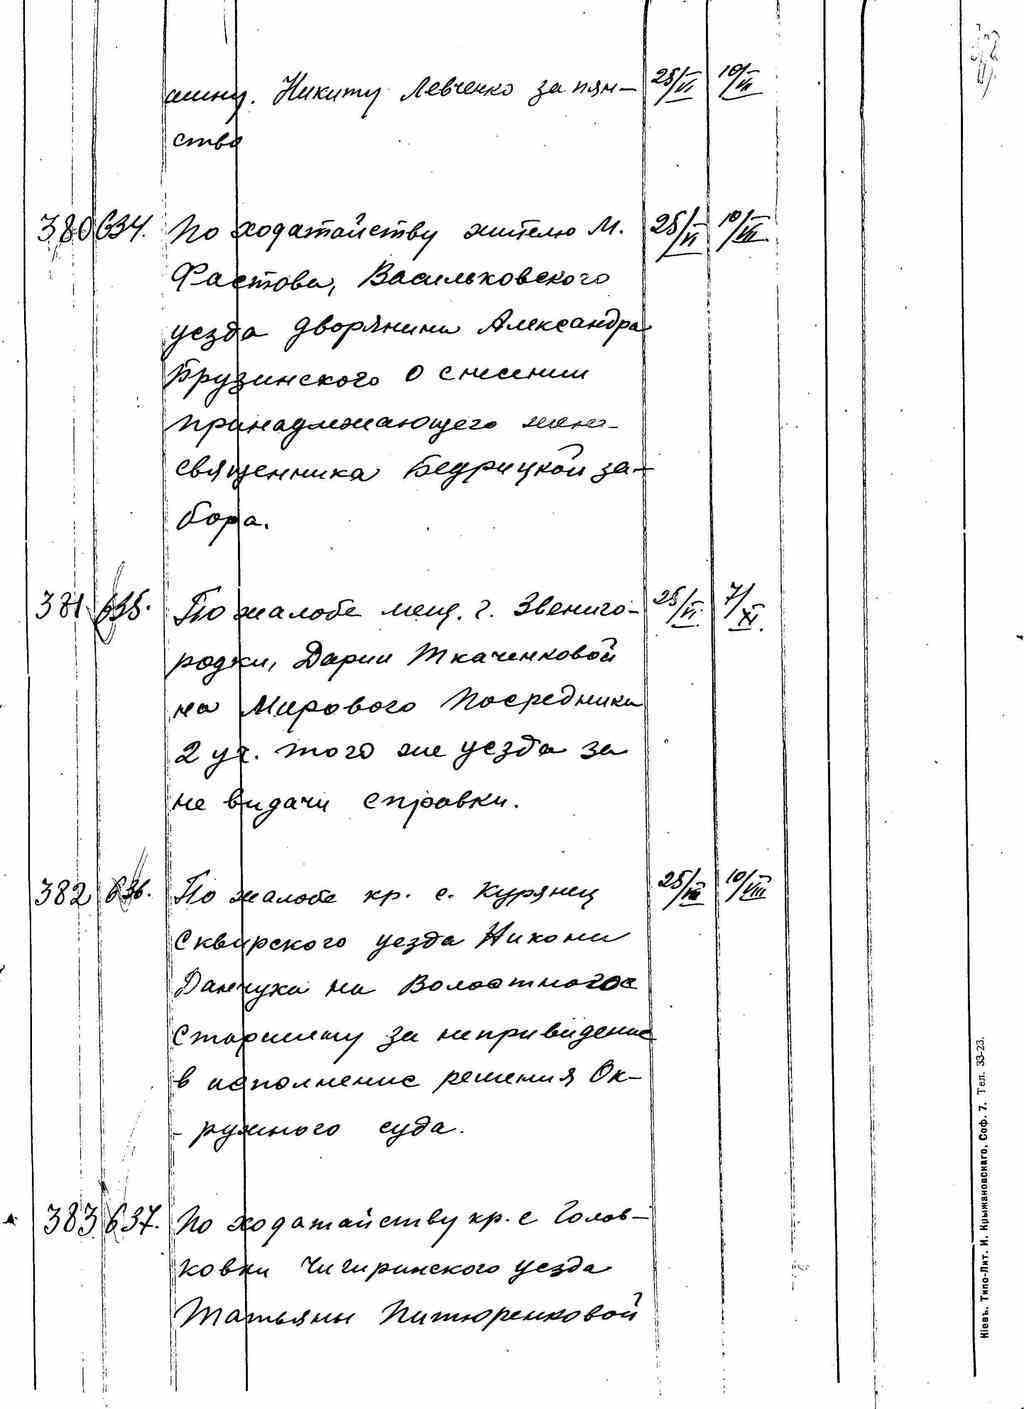 шину. Никиту Левченко за пян- 25/VI 10/VII
ство
380 634. По ходатайству жителю М. 25/VI 10/VII
Фастова, Васильковского
уезда дворянина Александра
Брузинского о снесении
принадлежающего жене
священника Бедрицкой за-
бора.
381 635. По жалобе мещ. г. Звениго- 25/VI 7/XI.
родки, Дарии Ткаченковой
на Мирового Посредника
2 уч. того же уезда за
не видачи справки.
382 636. По жалобе кр. с. Курянец 25/VI 10/VIII
Сквирского уезда Никона
Данчука на Волостного
Старшину за неприведение
в исполнение решения Ок-
- ружного суда.
383 637. По ходатайству кр. с Голов-
ковки Чигиринского уезда
Татьяны Питюренковой
Кіевъ. Типо-Лит. И. Крыжановскаго. Соф. 7. Тел. 33-23.